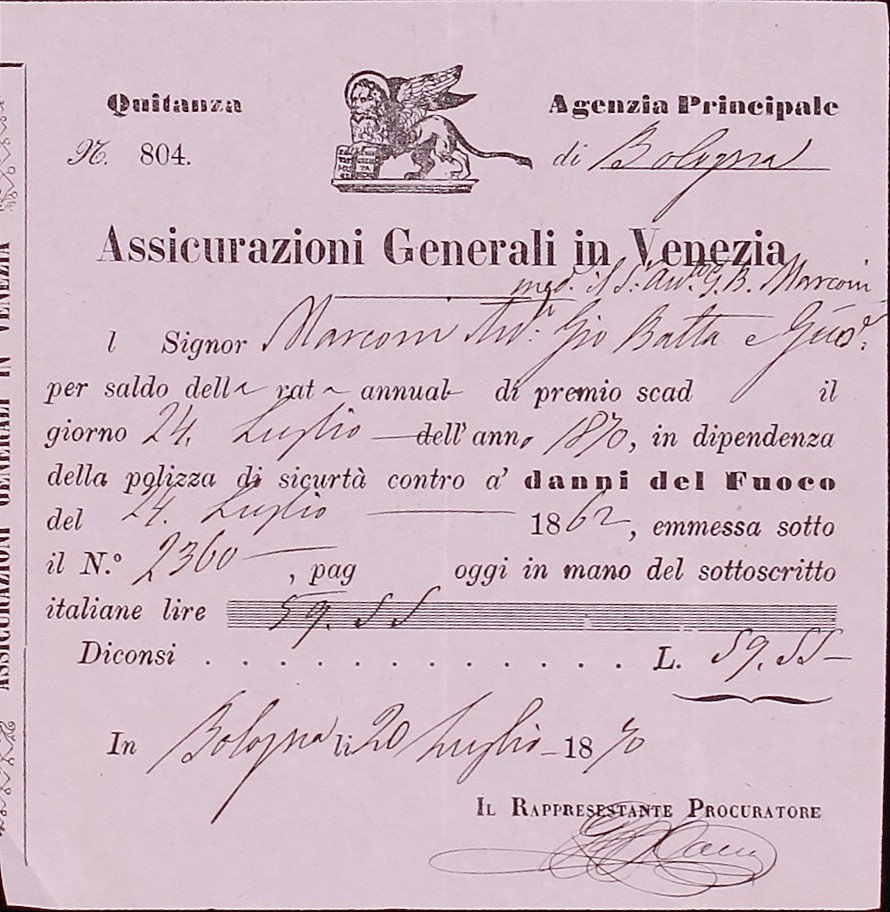 Quitanza
Agenzia Principale
N. 804.
di Bologna
Assicurazioni Generali in Venezia
il S. G. B. Marconi
l Signor Marconi Gio Batta e
per saldo della rata annual di premio scad il
giorno 24. Luglio dell' anno 1870, in dipendenza
della polizza di sicurtà contro a' danni del Fuoco
del 24. Luglio 1862, emmessa sotto
il N.º 2360, pag oggi in mano del sottoscritto
italiane lire 59.55
Diconsi . . . . . . . . . . . . . L. 59.55
In Bologna li 20 Luglio 1870
Il Rappresestante Procuratore
ASSICURAZIONI GENERALI IN VENEZIA